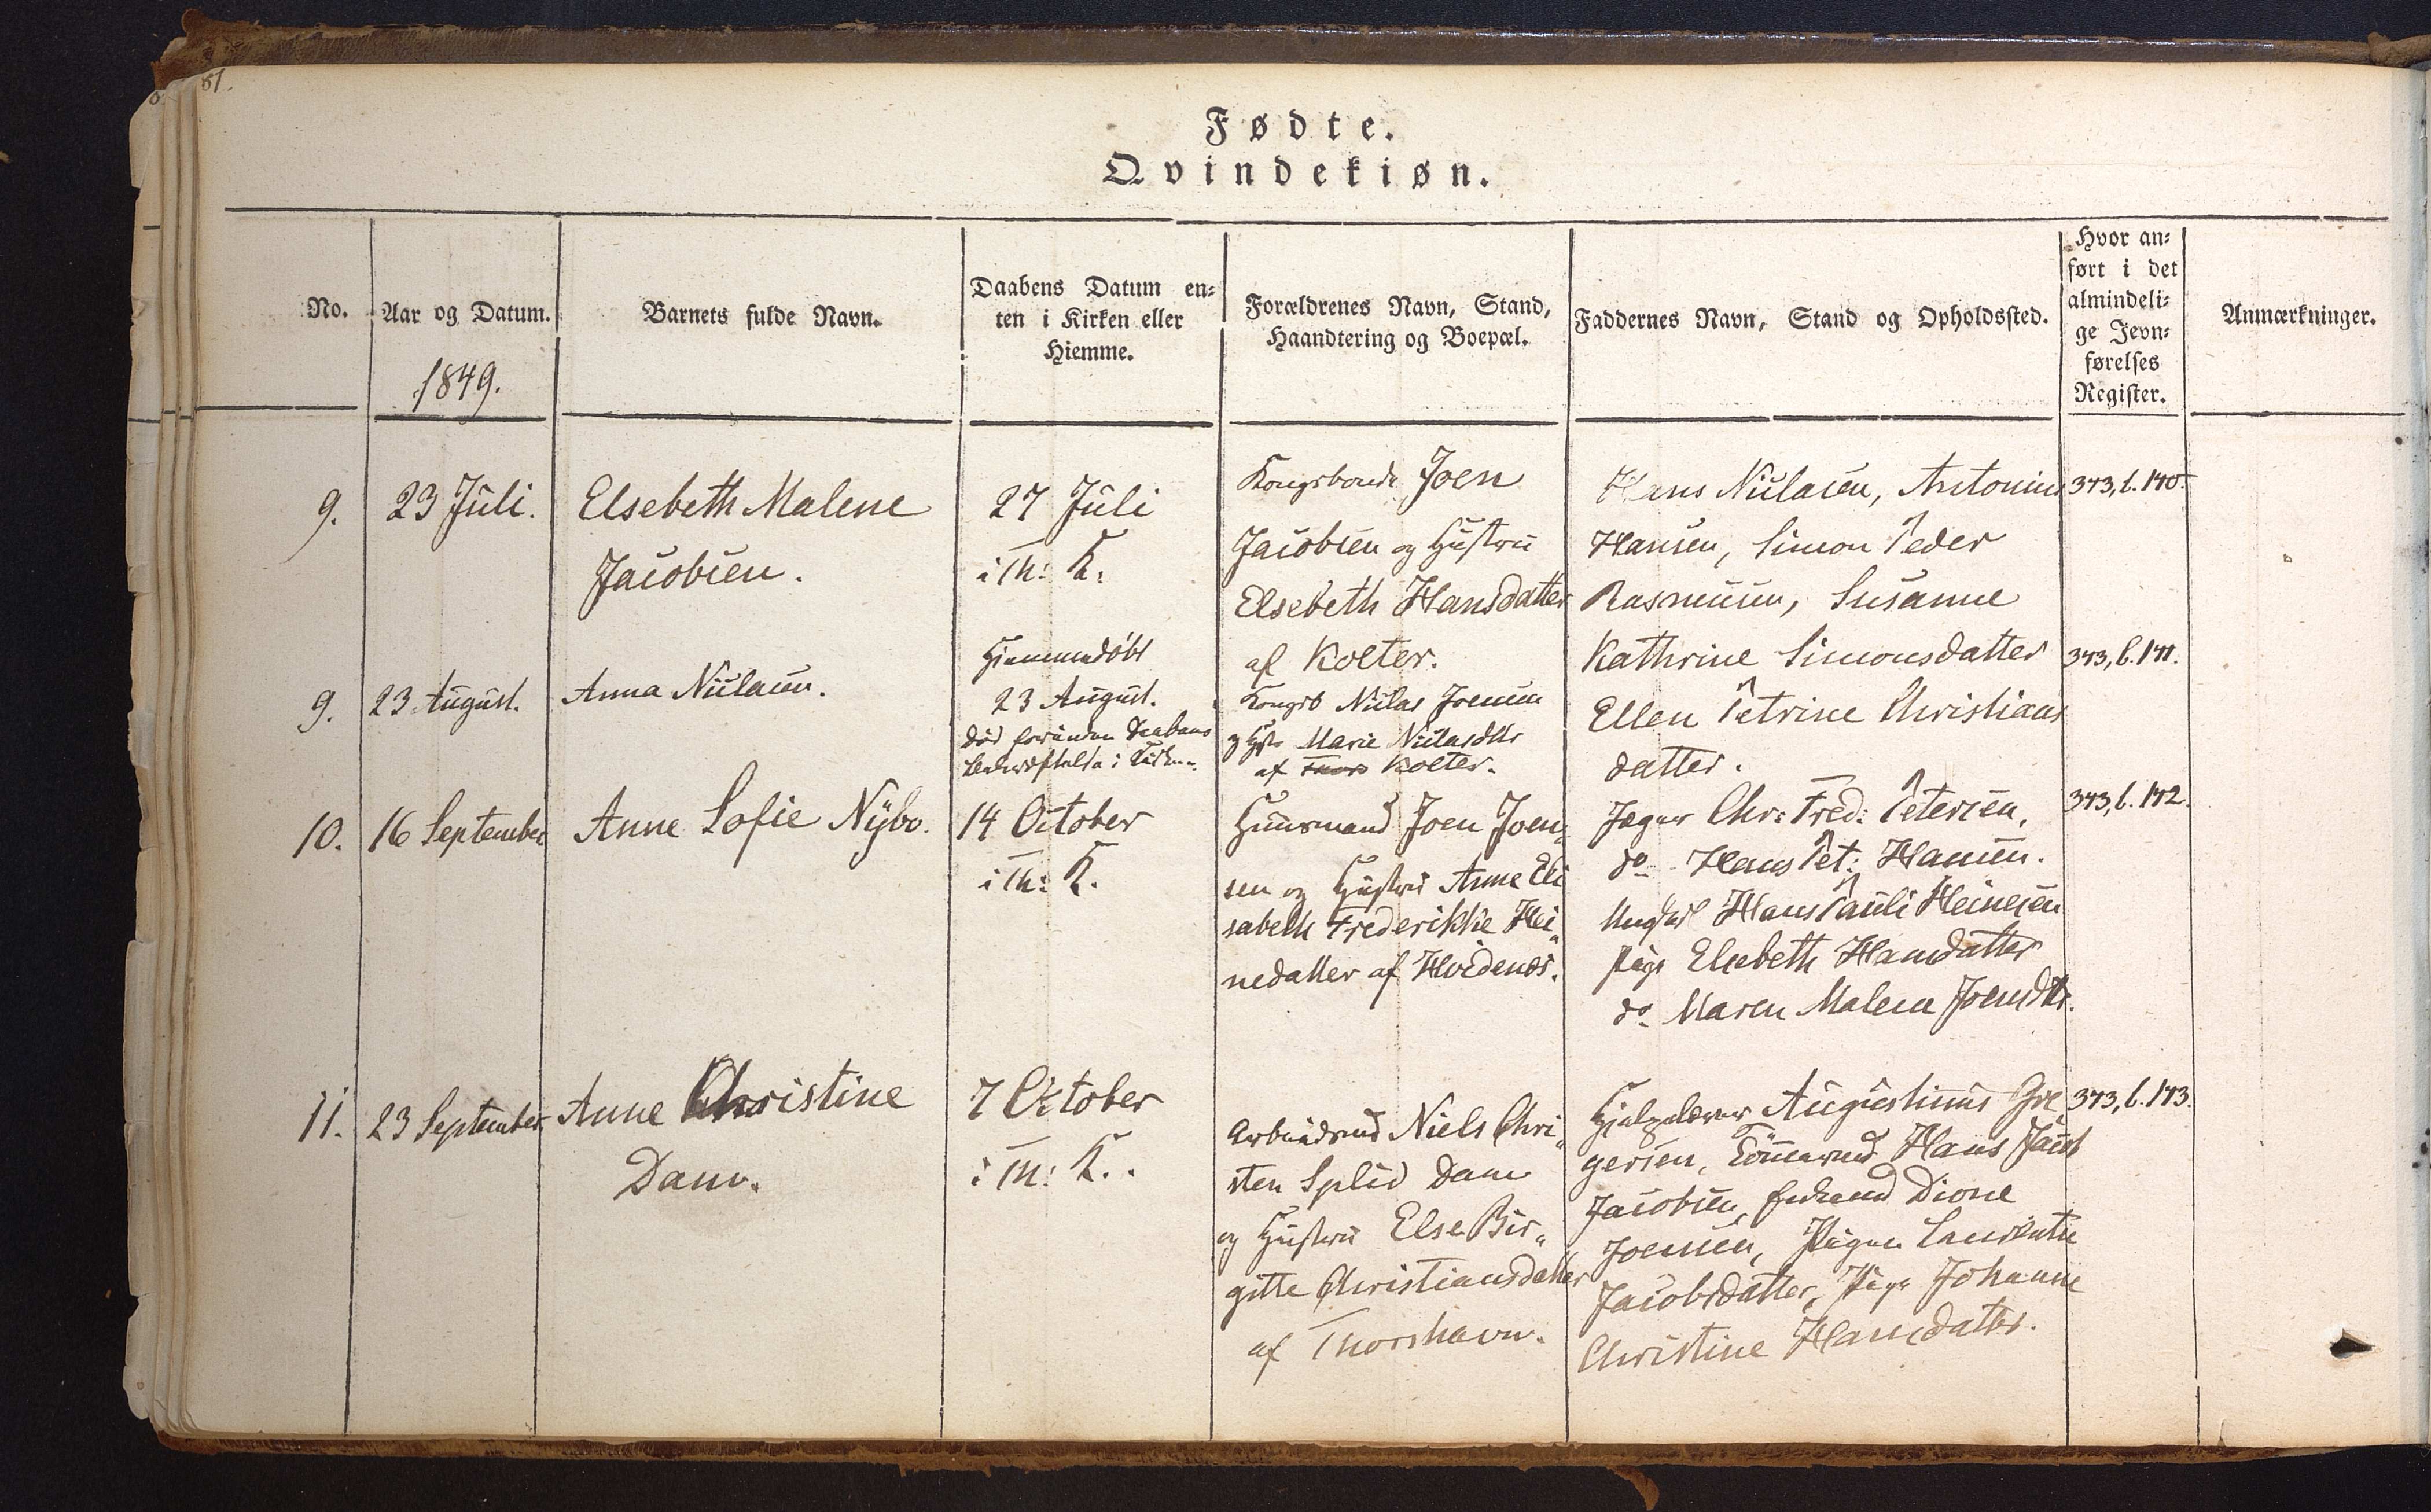 81.
Fødte.
Qvindekiøn.
No.
Aar og Datum.
1849.
Barnets fulde Navn.
Daabens Datum en-
ten i Kirken eller
Hiemme.
Forældrenes Navn, Stand,
Haandtering og Boepæl.
Faddernes Navn, Stand og Opholdssted.
Hvor an-
ført i det
almindeli-
ge Jevn-
førelses
Register.
Anmærkninger.
9.
23 Juli.
Elsebeth Malene
Jacobsen.
27 Juli
i Th: K:
Kongsbonde Joen
Jacobsen og Hustru
Elsebeth Hansdatter
af Kolter.
Hans Niclasen, Antonius
Hansen, Simon Peder
Rasmussen, Susanne
Kathrine Simonsdatter
Ellen Petrine Christians
datter.
373, l. 140.
9.
23 August.
Anna Niclasen.
Hjemmedøbt
23 August.
død forinden Daabens
Bekræftelse i Kirken.
Kongsb Niclas Joensen
og Hstr Marie Niclasdttr
af Kolter.
373, l. 141.
10.
16 September
Anne Sofie Nybo.
14 October
i Th: K.
Huusmand Joen Joen-
sen og Hustru Anne Eli
sabeth Frederikke Hei„
nedatter af Hvidenæs.
Jæger Chr. Fred: Petersen,
do Hans Pet: Hansen.
Ungkarl Hans Pauli Heinesen
Pige Elsebeth Hansdatter
do Maren Malene Joensdttr.
373, l. 142.
11.
23 September
Anne Christine
Dam.
7 October
i Th: K..
Arbeidsmd Niels Chri„
sten Splid Dam
og Hustru Else Bir„
gitte Christiansdatter
af Thorshavn.
Hjelpelærer Augustinus Gre
gersen, Tømmermd Hans Jacob
Jacobsen, Enkemd Dione
Joensen, Pigen Laurentse
Jacobsdatter, Pige Johanne
Christine Hansdatter.
373, l. 143.